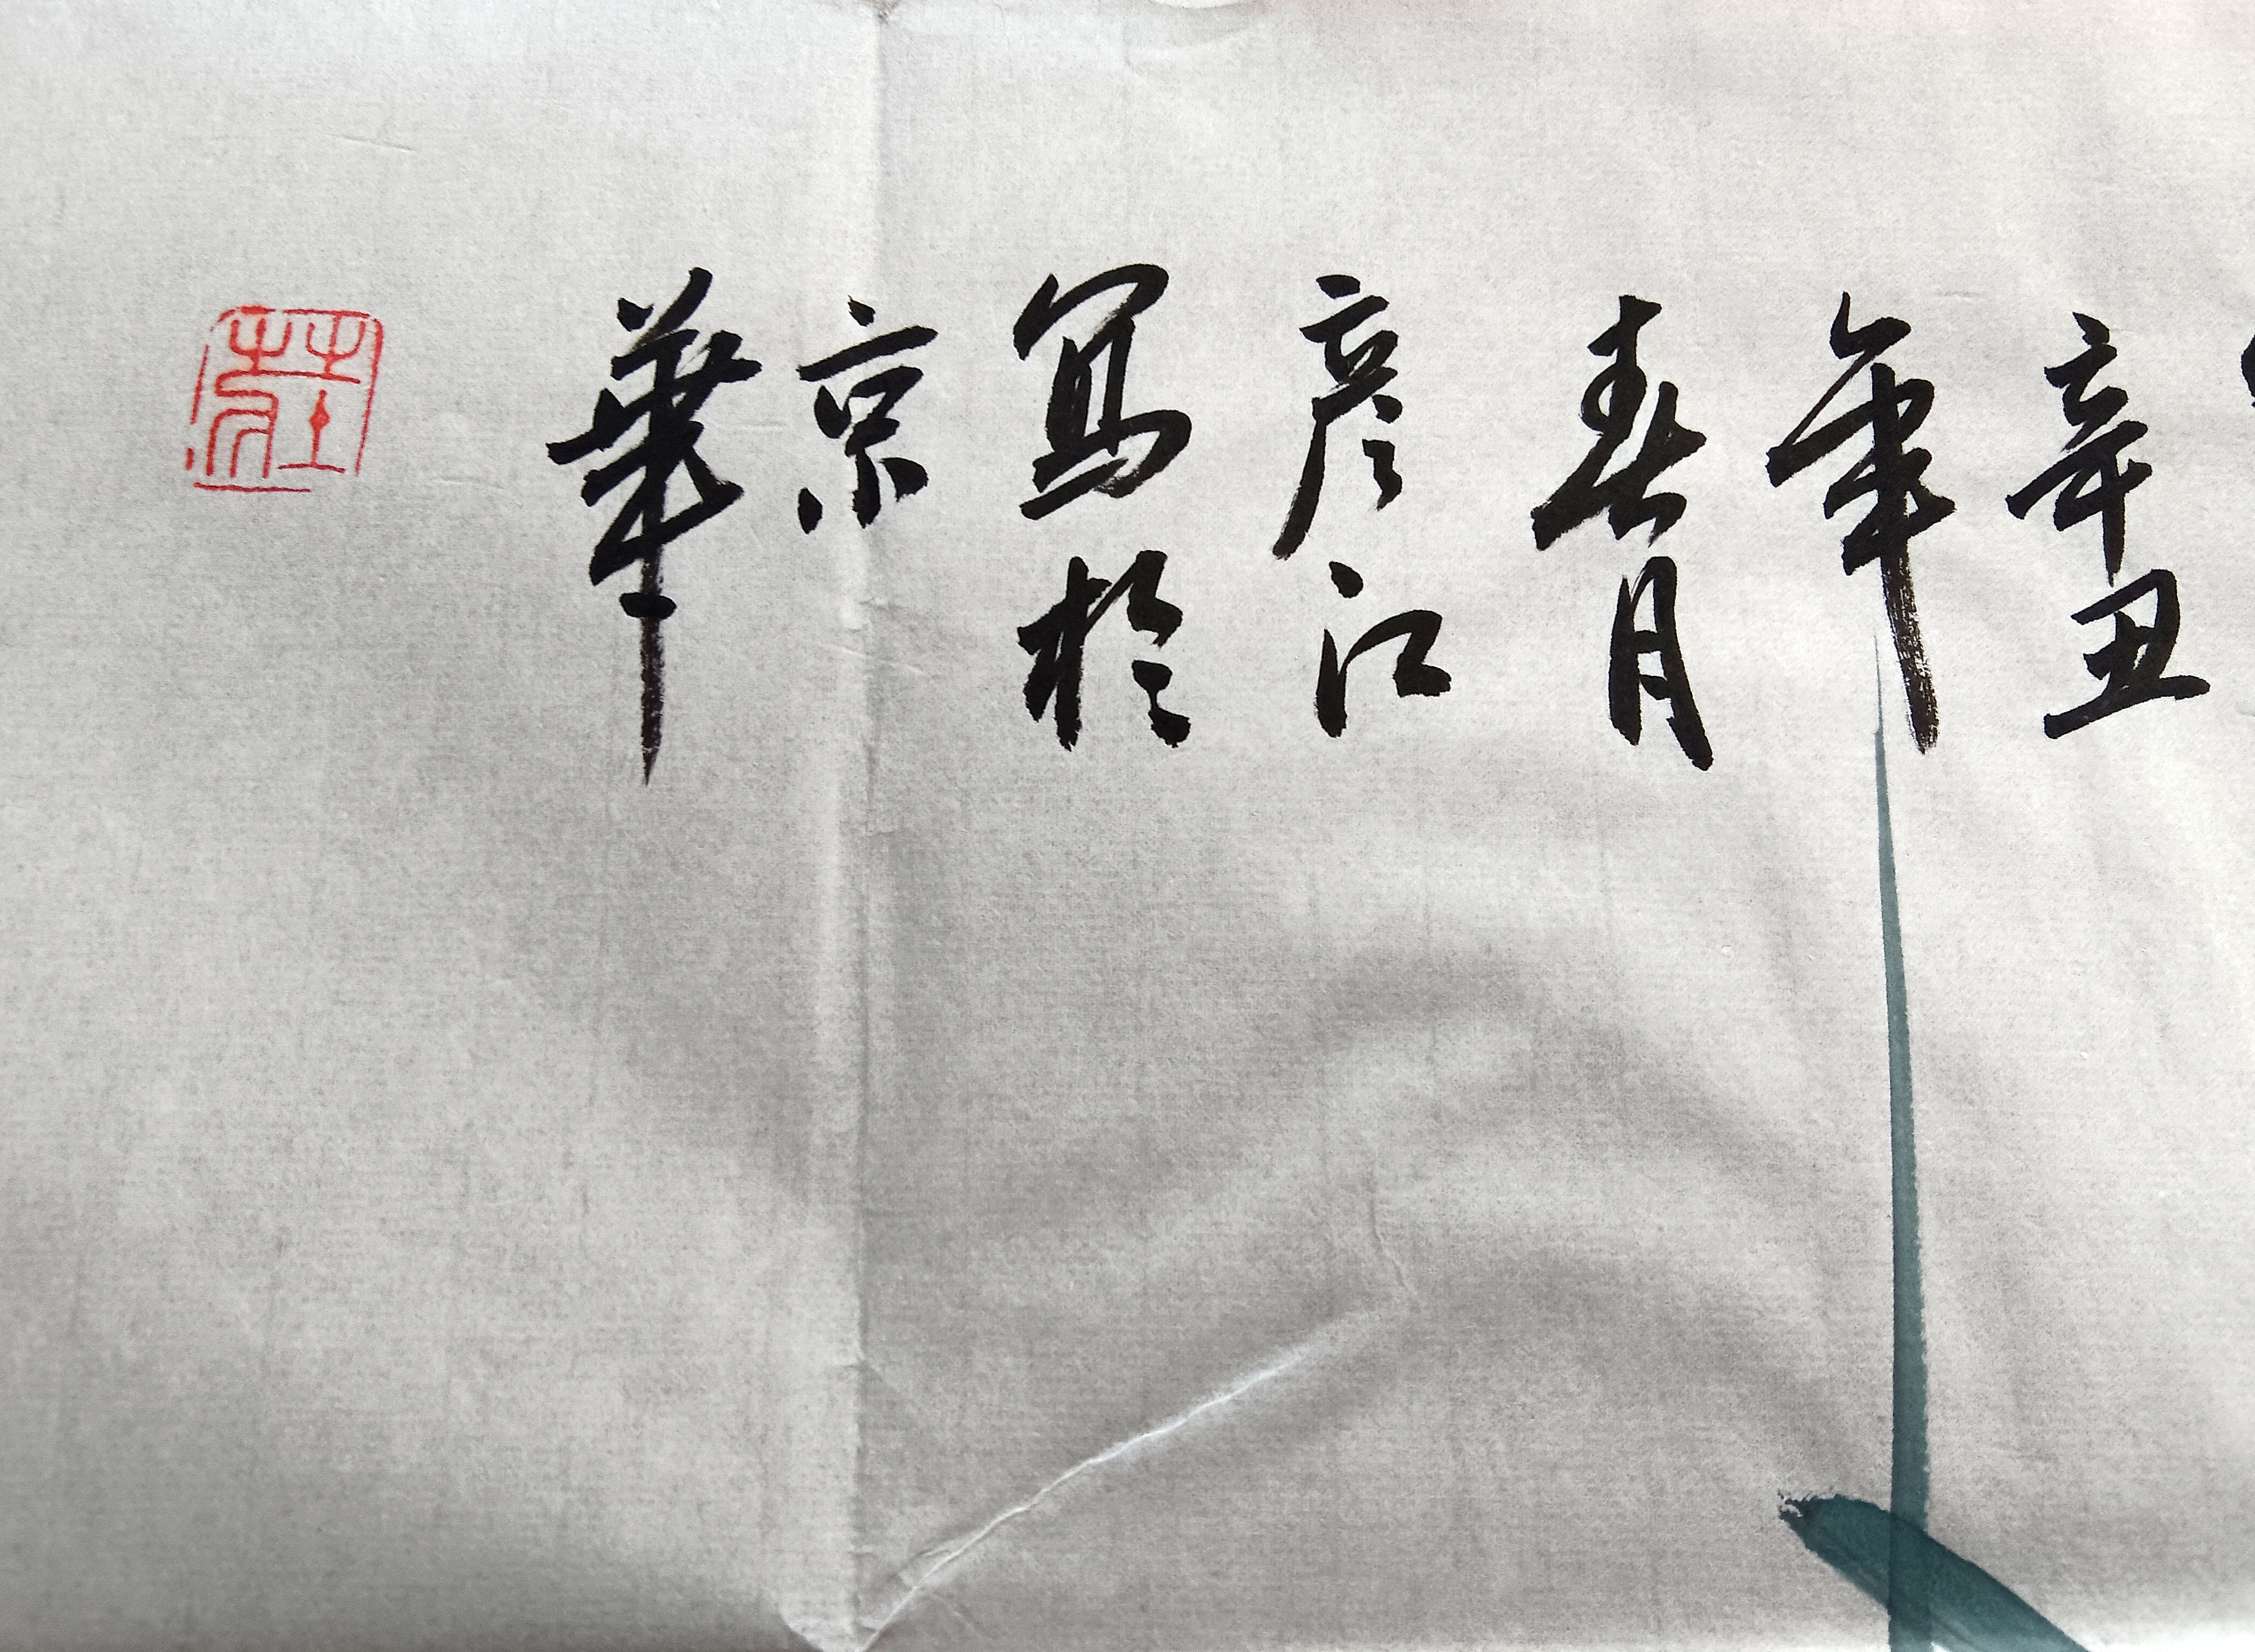 辛丑
年
春月
彦江
寫於
京
華